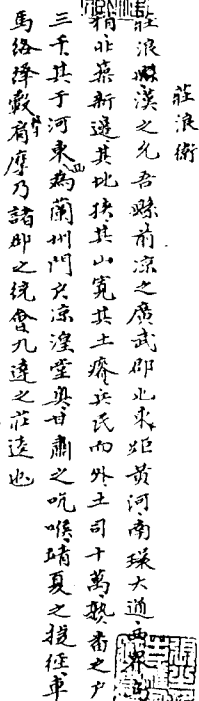 莊浪衛
莊浪漢之允吾縣前凉之廣武郡也東距黃河南環大通西界
北築新邊其地狹其山寬其土瘠兵民而外土司十萬熟番之戶
三千其于河東為蘭州門戶凉湟堂奥甘肅之咽喉靖夏之援徑車
馬絡繹轂有摩乃諸郡之統會九達之莊逵也